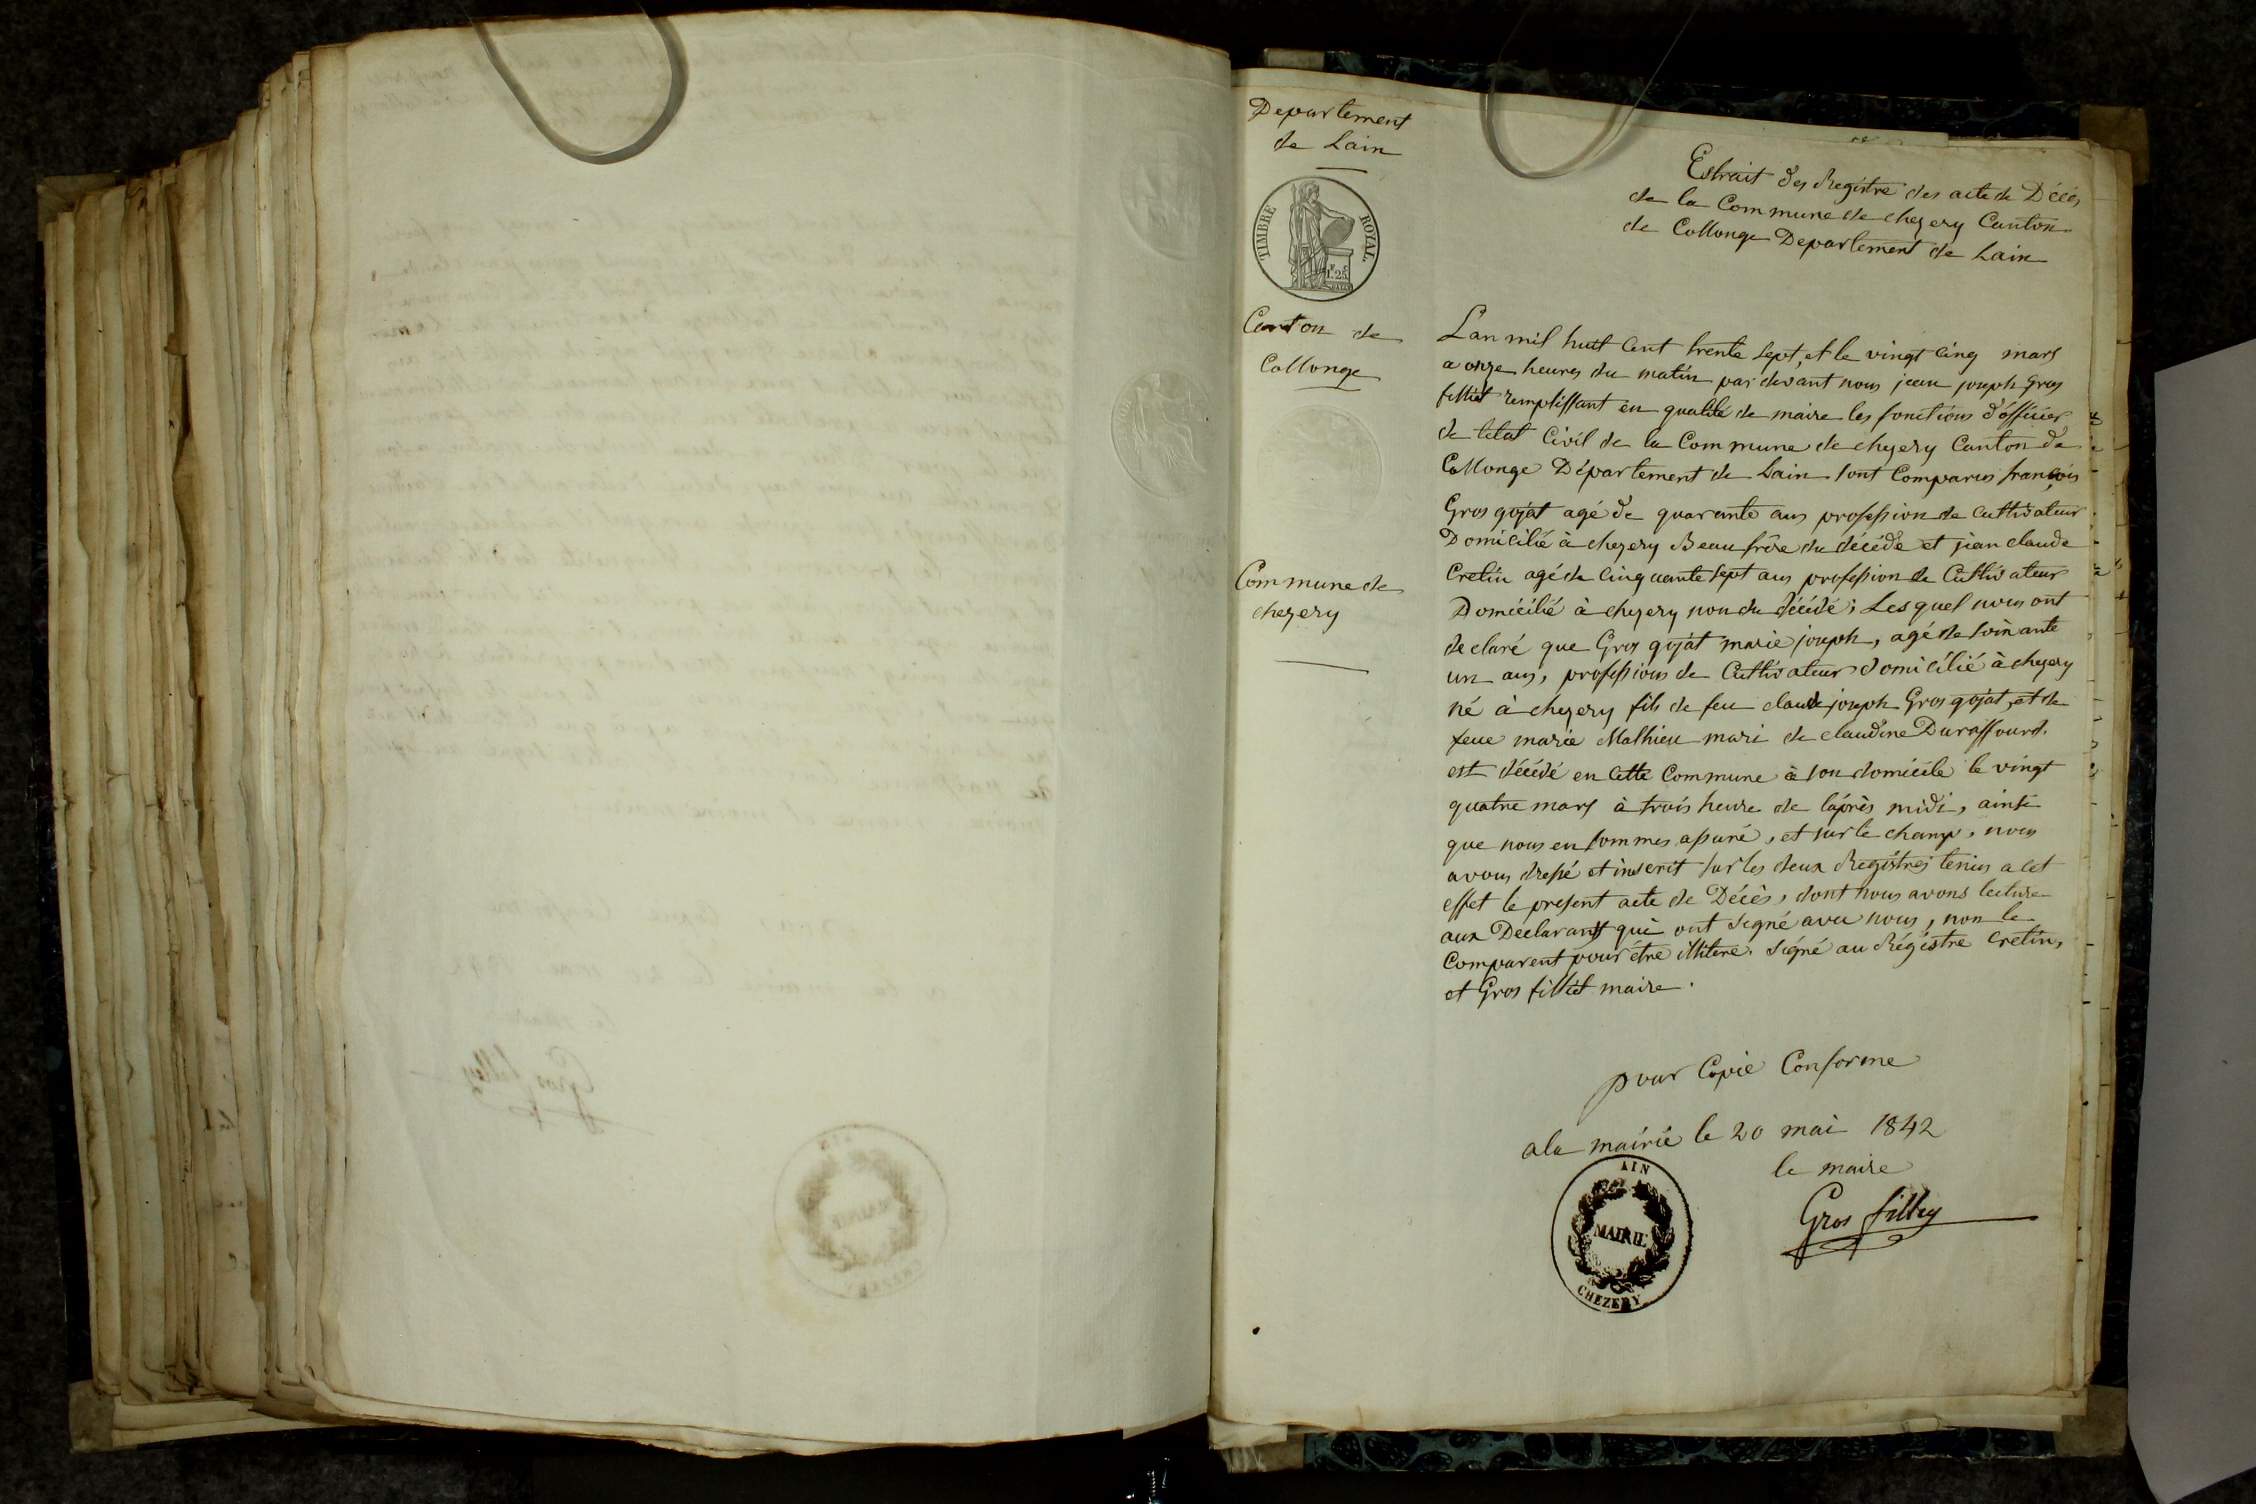 Departement
de Lain
TIMBRE ROYAL
1F 25C
Canton de
Collonge
Commune de
chezery
Extrait des Registre des acte de Décés
de la Commune de chezery Canton
de Collonge Departement de Lain
L'an mil huit Cent trente Sept, et le vingt cinq mars
a onze heures du matin par devant nous jean joseph Gros
filliet remplissant en qualité de maire les fonctions d'officier
de létat Civil de la Commune de chezery Canton de
Collonge Département de Lain sont Comparus françois
Gros gojat agé de quarante ans profession de Cultivateur
Domicilié à chezery Beau frère du décédé et jean claude
Cretin agé de Cinquante Sept ans profession de Cultivateur
Domicilié à chezery non du décédé; Lesquel nous ont
declaré que Gros gojat marie joseph, agé de Soixante
un ans, profession de Cultivateur domicilié à chezery
né à chezery fils de feu claude joseph Gros gojat, et de
feue marie Mathieu mari de claudine Duraffourd.
est décédé en Cette Commune à son domicile le vingt
quatre mars à trois heure de láprès midi, ainsi
que nous en sommes assuré, et sur le champ, nous
avons dressé et inscrit sur les deux Registres tenus a cet
effet le présent acte de Décès, dont nous avons lecture
aux Declarants qui ont signé avec nous, non le
Comparent pour être illiteré. signé au Régistre Cretin,
et Gros filliet maire.
pour Copie Conforme
a la mairie le 20 mai 1842
le maire
Gros filley
AIN
MAIRIE
CHEZERY